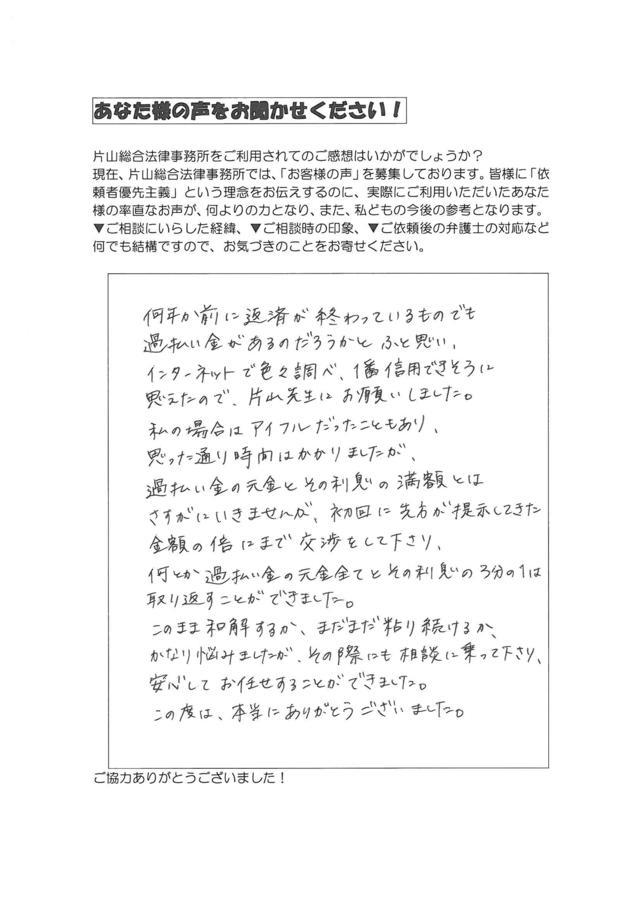 あなた様の声をお聞かせください！
片山総合法律事務所をご利用されてのご感想はいかがでしょうか？
現在、片山総合法律事務所では、「お客様の声」を募集しております。皆様に「依
頼者優先主義」という理念をお伝えするのに、実際にご利用いただいたあなた
様の率直なお声が、何よりの力となり、また、私どもの今後の参考となります。
▼ご相談にいらした経緯、▼ご相談時の印象、▼ご依頼後の弁護士の対応など
何でも結構ですので、お気づきのことをお寄せください。
何年か前に返済が終わっているものでも
過払い金があるのだろうかとふと思い、
インターネットで色々調べ、1番信用できそうに
思えたので、片山先生にお願いしました。
私の場合はアイフルだったこともあり、
思った通り時間はかかりましたが、
過払い金の元金とその利息の満額とは
さすがにいきませんが、初回に先方が提示してきた
金額の倍にまで交渉をして下さり、
何とか過払い金の元金全てとその利息の3分の1は
取り返すことができました。
このまま和解するか、まだまだ粘り続けるか、
かなり悩みましたが、その際にも相談に乗って下さり、
安心してお任せすることができました。
この度は、本当にありがとうございました。
ご協力ありがとうございました！